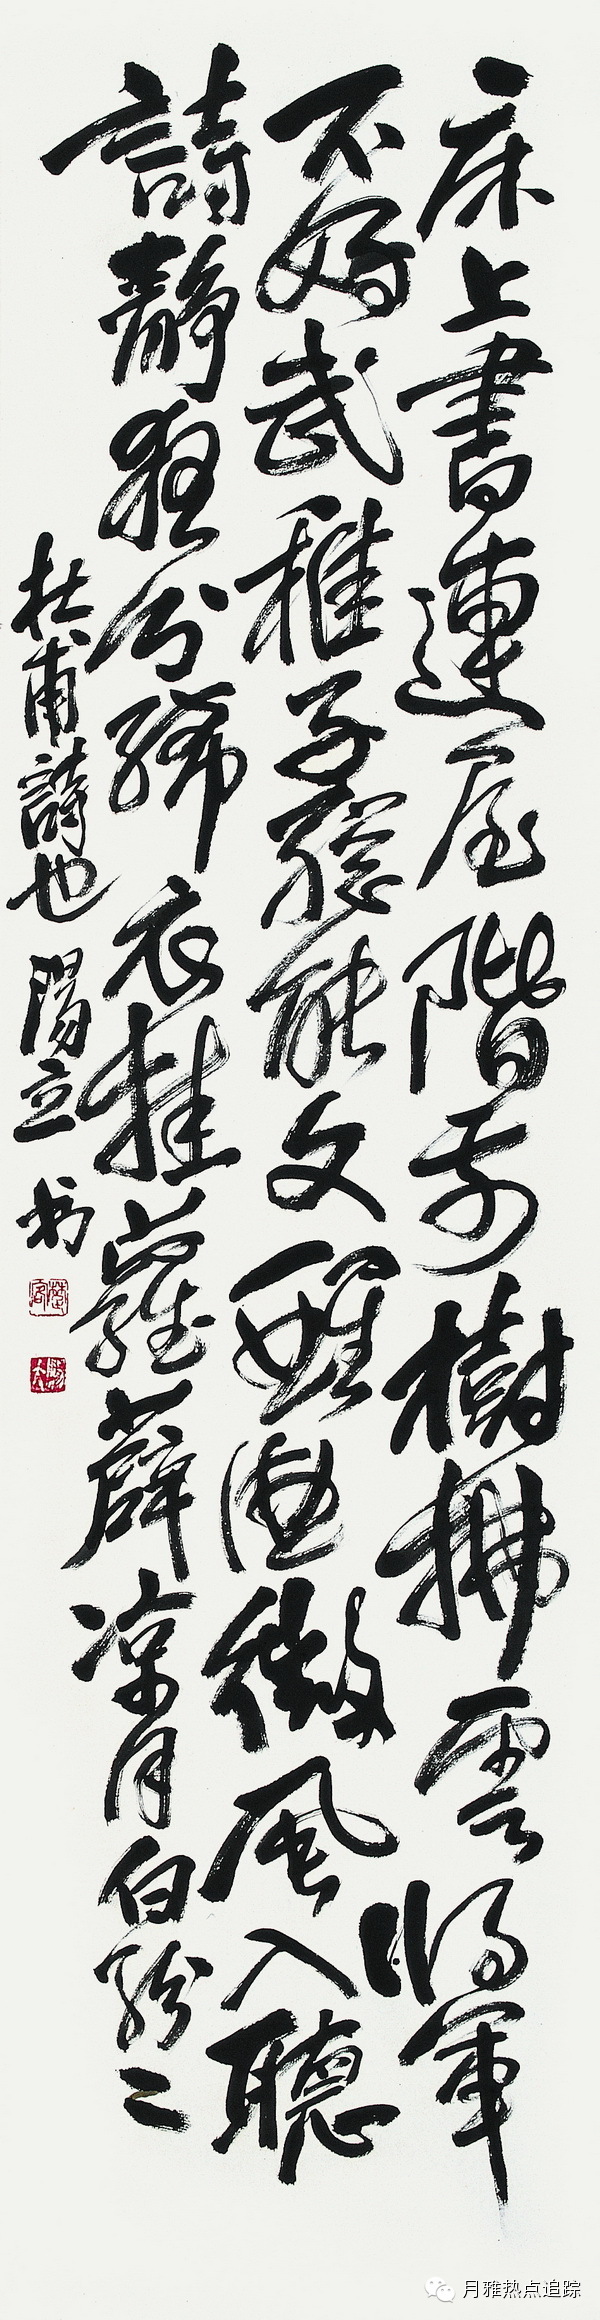 床上書連屋階前樹拂雲將軍
不好武稚子總能文醒酒微風入聽
詩靜夜分絺衣挂蘿薜凉月白紛々
杜甫詩也 立书
月雅热点追踪